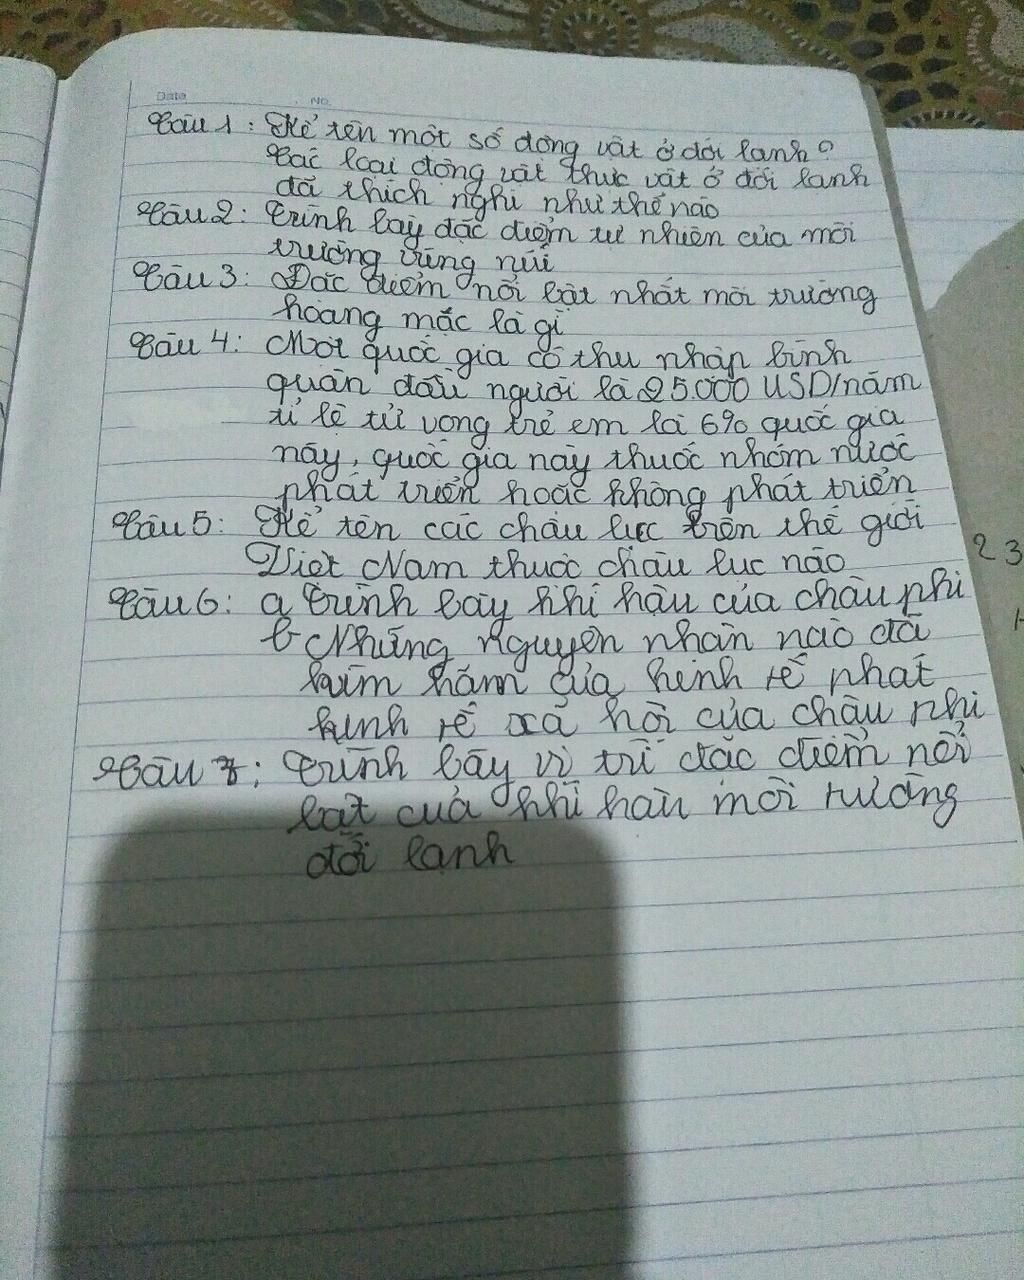 Date No.
Câu 1: Kể tên một số động vật ở đới lạnh?
Các loại động vật thực vật ở đới lạnh
đã thích nghi như thế nào
Câu 2: Trình bày đặc điểm tự nhiên của môi
trường vùng núi
Câu 3: Đặc điểm nổi bật nhất môi trường
hoang mạc là gì
Câu 4: Một quốc gia có thu nhập bình
quân đầu người là 25.000 USD/năm
tỉ lệ tử vong trẻ em là 6% quốc gia
này, quốc gia này thuốc nhóm nước
phát triển hoặc không phát triển
Câu 5: Kể tên các châu lục trên thế giới
Việt Nam thuộc châu lục nào
Câu 6: a Trình bày khí hậu của châu phi
b Những nguyên nhân nào đã
kìm hãm của kinh tế phát
kinh tế xã hội của châu phi
Câu 7: Trình bày vị trí đặc điểm nổi
bật của khí hậu môi trường
đới lạnh
2 3